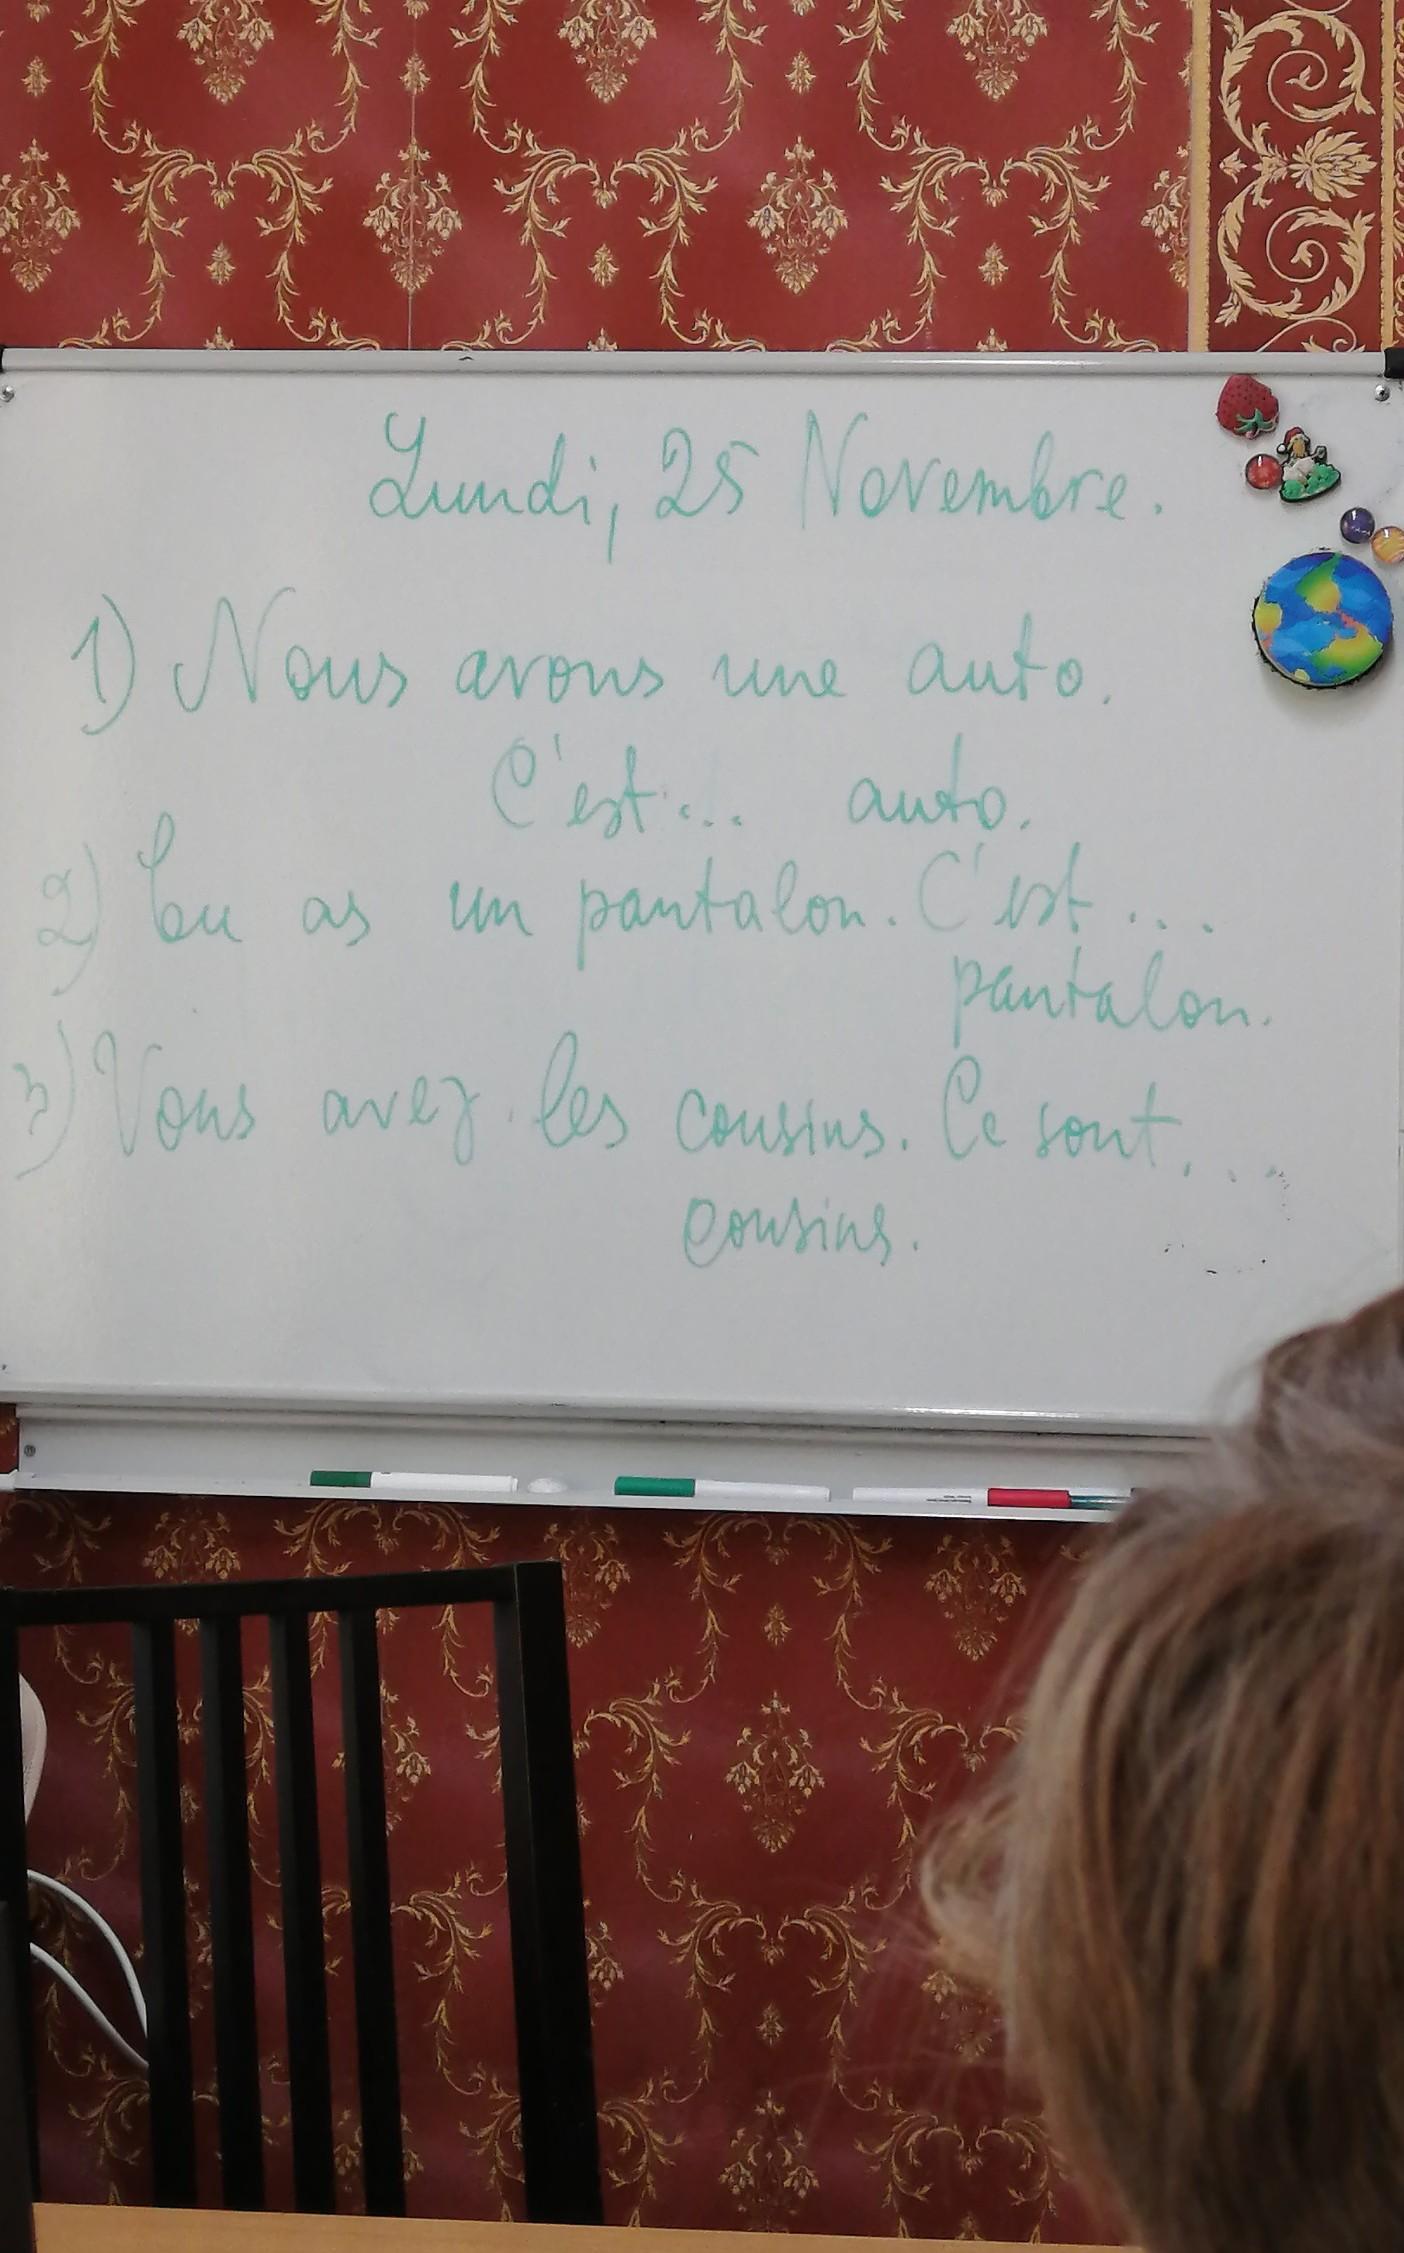 Lundi, 25 Novembre.
1) Nous avons une auto.
C'est... auto.
2) Tu as un pantalon. C'est ...
pantalon.
3) Vous avez les cousins. Ce sont ...
cousins.